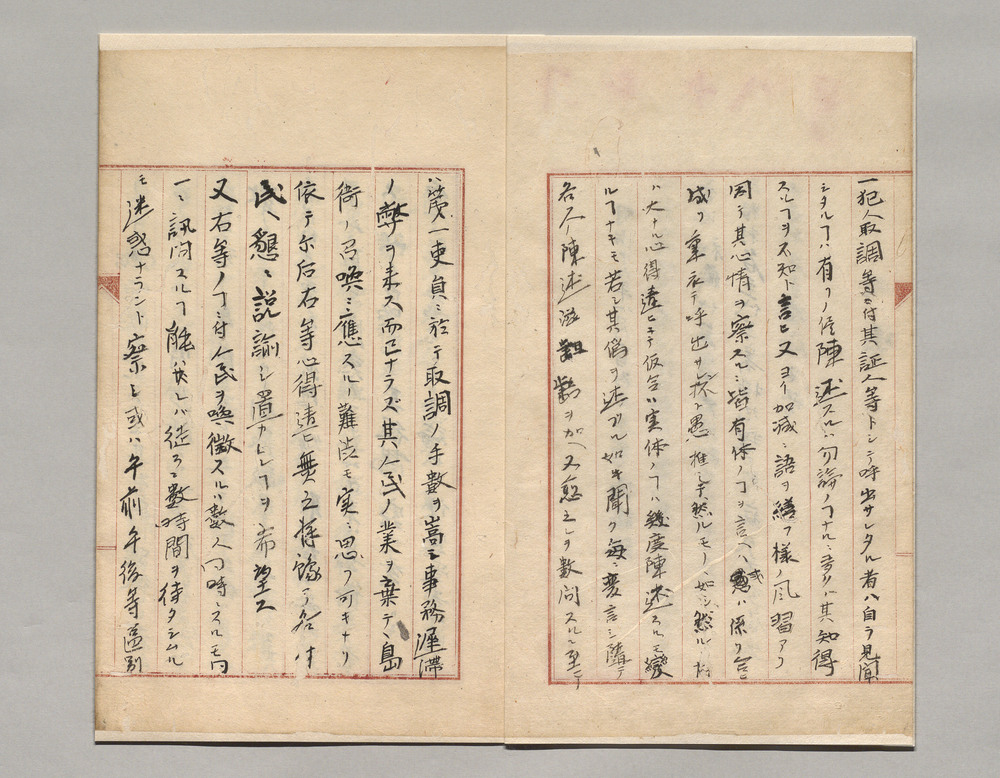 一犯人取調等ニ付其証人等トシテ呼出サレタル者ハ自ラ見聞
シタルヿハ有リノ儘陳述スルハ勿論ノヿナルニ其知得
スルヿヲ不知ト言ヒ又ヨイ加減ニ語ヲ繕フ様ノ風習アリ
因テ其心情ヲ察スルニ皆有体ノヿヲ言ヘハ ハ係リ合ニ
成リ重テ呼出サレ抔ト愚推シテ然ルモノヽ如シ然ル
ハ大ナル心得違ヒニテ仮令ハ実体ノヿハ幾度陳述スルモ変
ルヿナキモ若シ其偽ヲ述ブル如キ聞ク毎ニ変言シ随テ
各人陳述齟齬ヲ加ヘ又愈之レヲ数問スルニ至テ
ハ 一吏員ニ於テ取調ノ手数ヲ嵩ミ事務遅滞
ノ弊ヲ来ス而已ナラズ其人民ノ業ヲ棄テ島
衙ノ召喚ニ応スルノ難渋モ実ニ思フ可キナリ
依テ尓后右等心得違ヒ無之様 各村
民ヘ懇ニ説諭シ置カレンヿヲ希望ス
又右等ノヿニ付人民ヲ喚徴スルハ数人同時ニスルモ同
一ニ訊問スルヿ能ハサレバ徒ラニ数時間ヲ待タシムル
モ迷惑ナラント察シ或ハ午前午後等区別